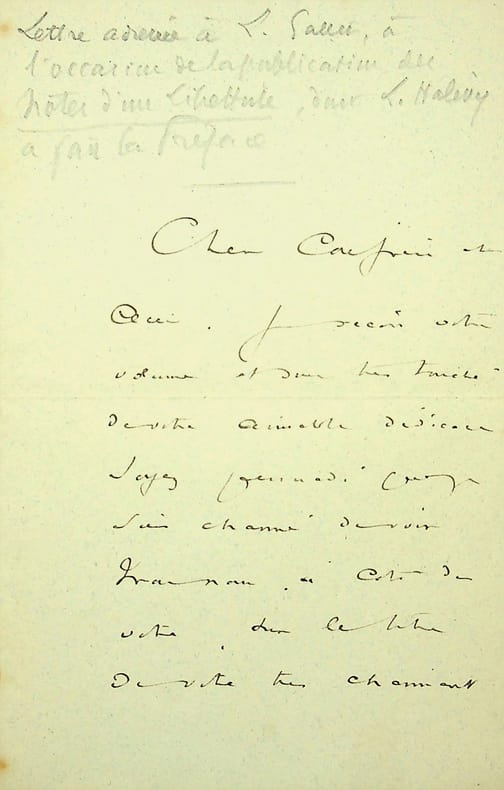 Lettre adressée à L. Gallet, à
l'occasion de la publication des
Notes d'un Librettiste, dont L. Halévy
a fait la Préface
Cher Confrère et
Ami. Je reçois votre
volume et suis très touché
de votre aimable dédicace
Soyez persuadé que je
suis charmé de voir
mon nom, à côté du
votre, sur le titre
de votre très charmant